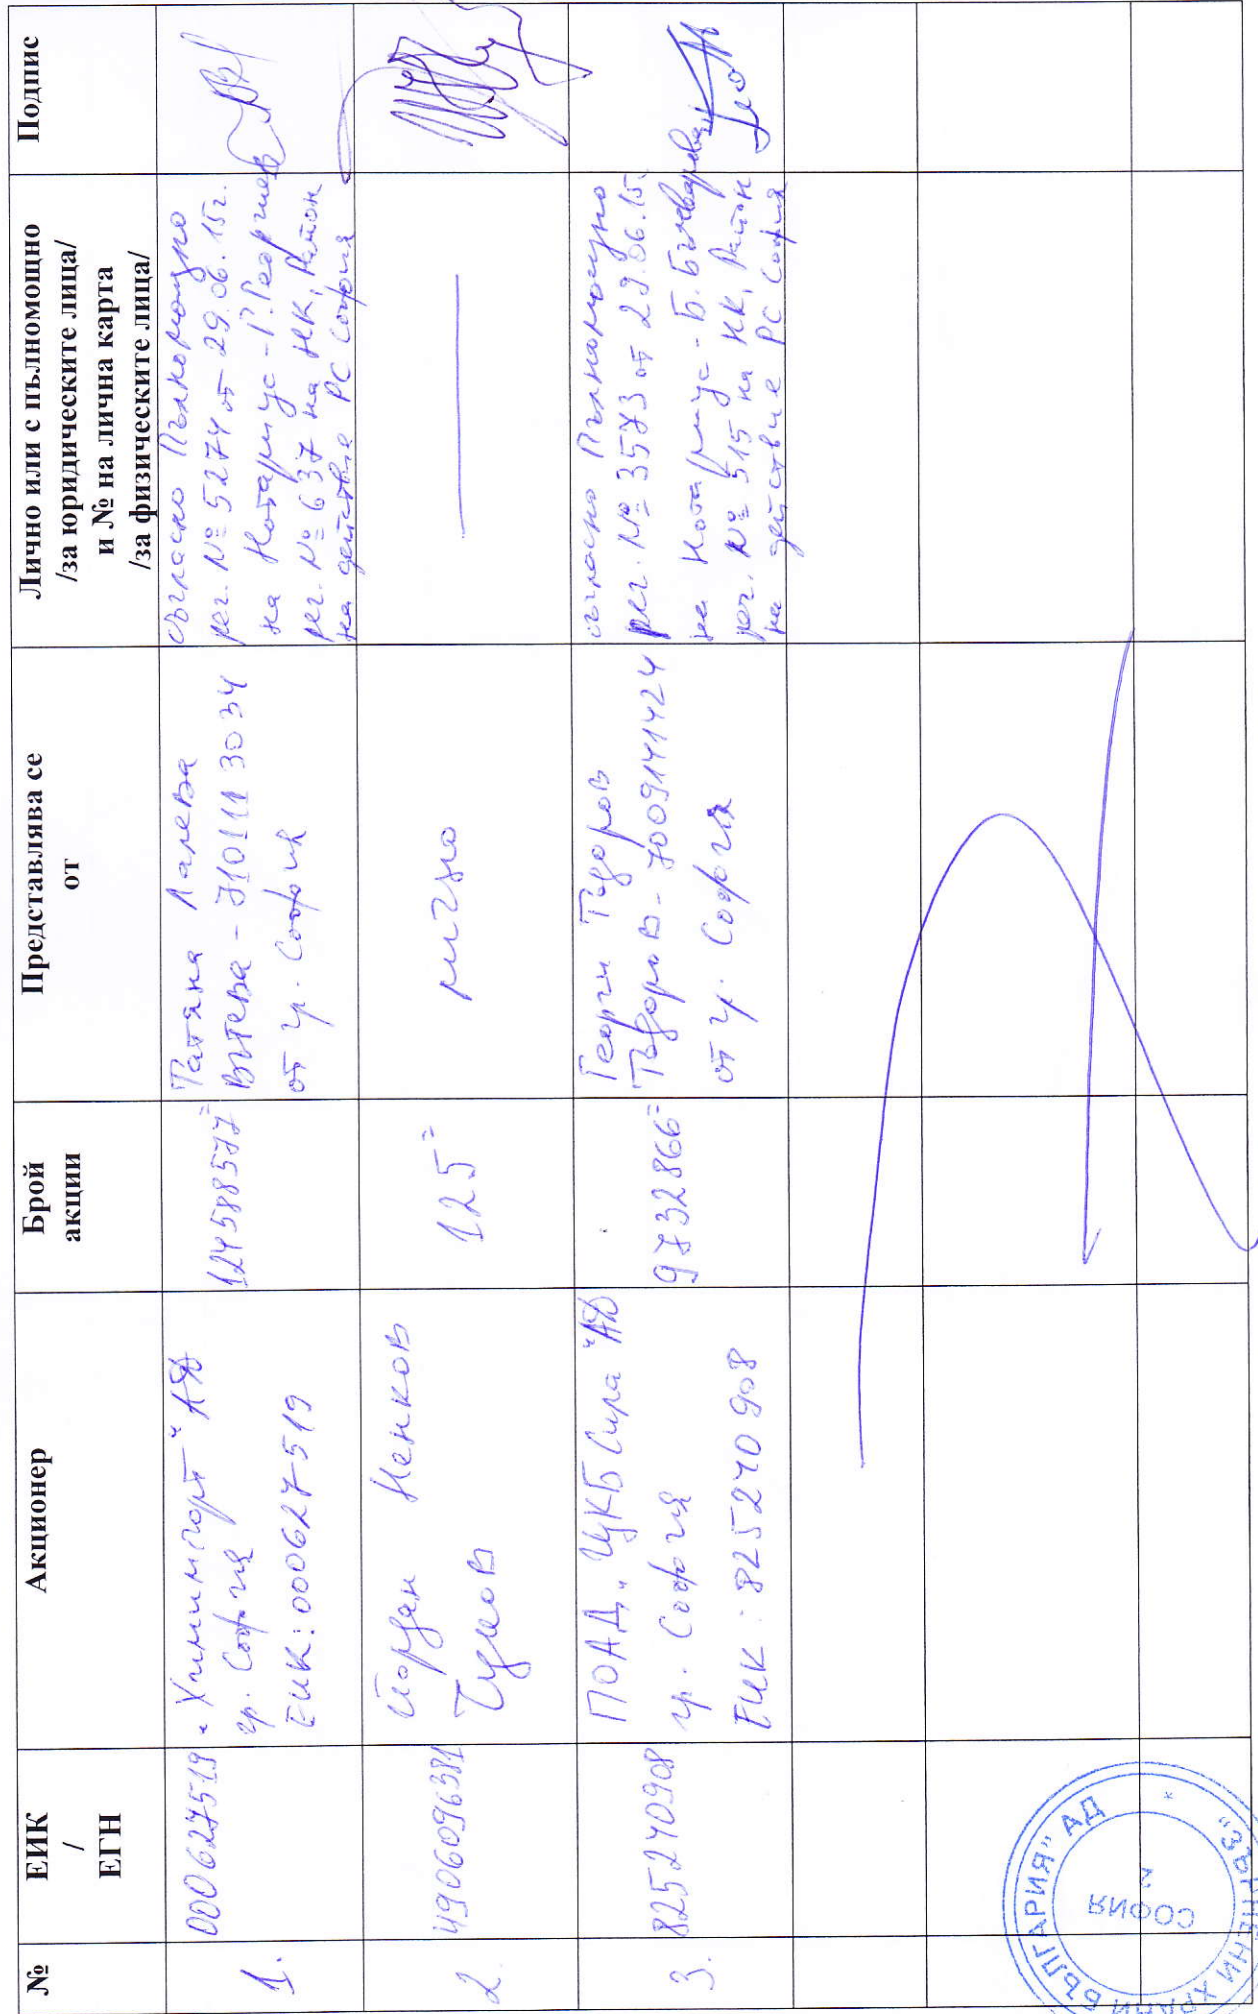 №
ЕИК
/
ЕГН
Акционер
Брой
акции
Представлява се
от
Лично или с пълномощно
/за юридическите лица/
и № на лична карта
/за физическите лица/
Подпис
1.
000627519
„Химимпорт“ АД
гр. София
ЕИК: 000627519
124588577=
Татяна Малева
Вътева - 7101113034
от гр. София
съгласно Пълномощно
рег. № 5274 от 29.06.15г.
на Нотариус - Г. Георгиев
рег. № 637 на НК, Район
на действие РС София
2.
4906096381
Йордан Ненков
Цуков
125=
лично
3.
825240908
ПОАД „ЦКБ Сила“ АД
гр. София
ЕИК: 825240908
9732866=
Георги Тодоров
Тодоров - 7009141424
от гр. София
съгласно Пълномощно
рег. № 3573 от 29.06.15г.
на Нотариус - Б. Бъчварова
рег. № 515 на НК, Район
на действие РС София
"ЗЪРНЕНИ ХРАНИ БЪЛГАРИЯ" АД *
СОФИЯ
2